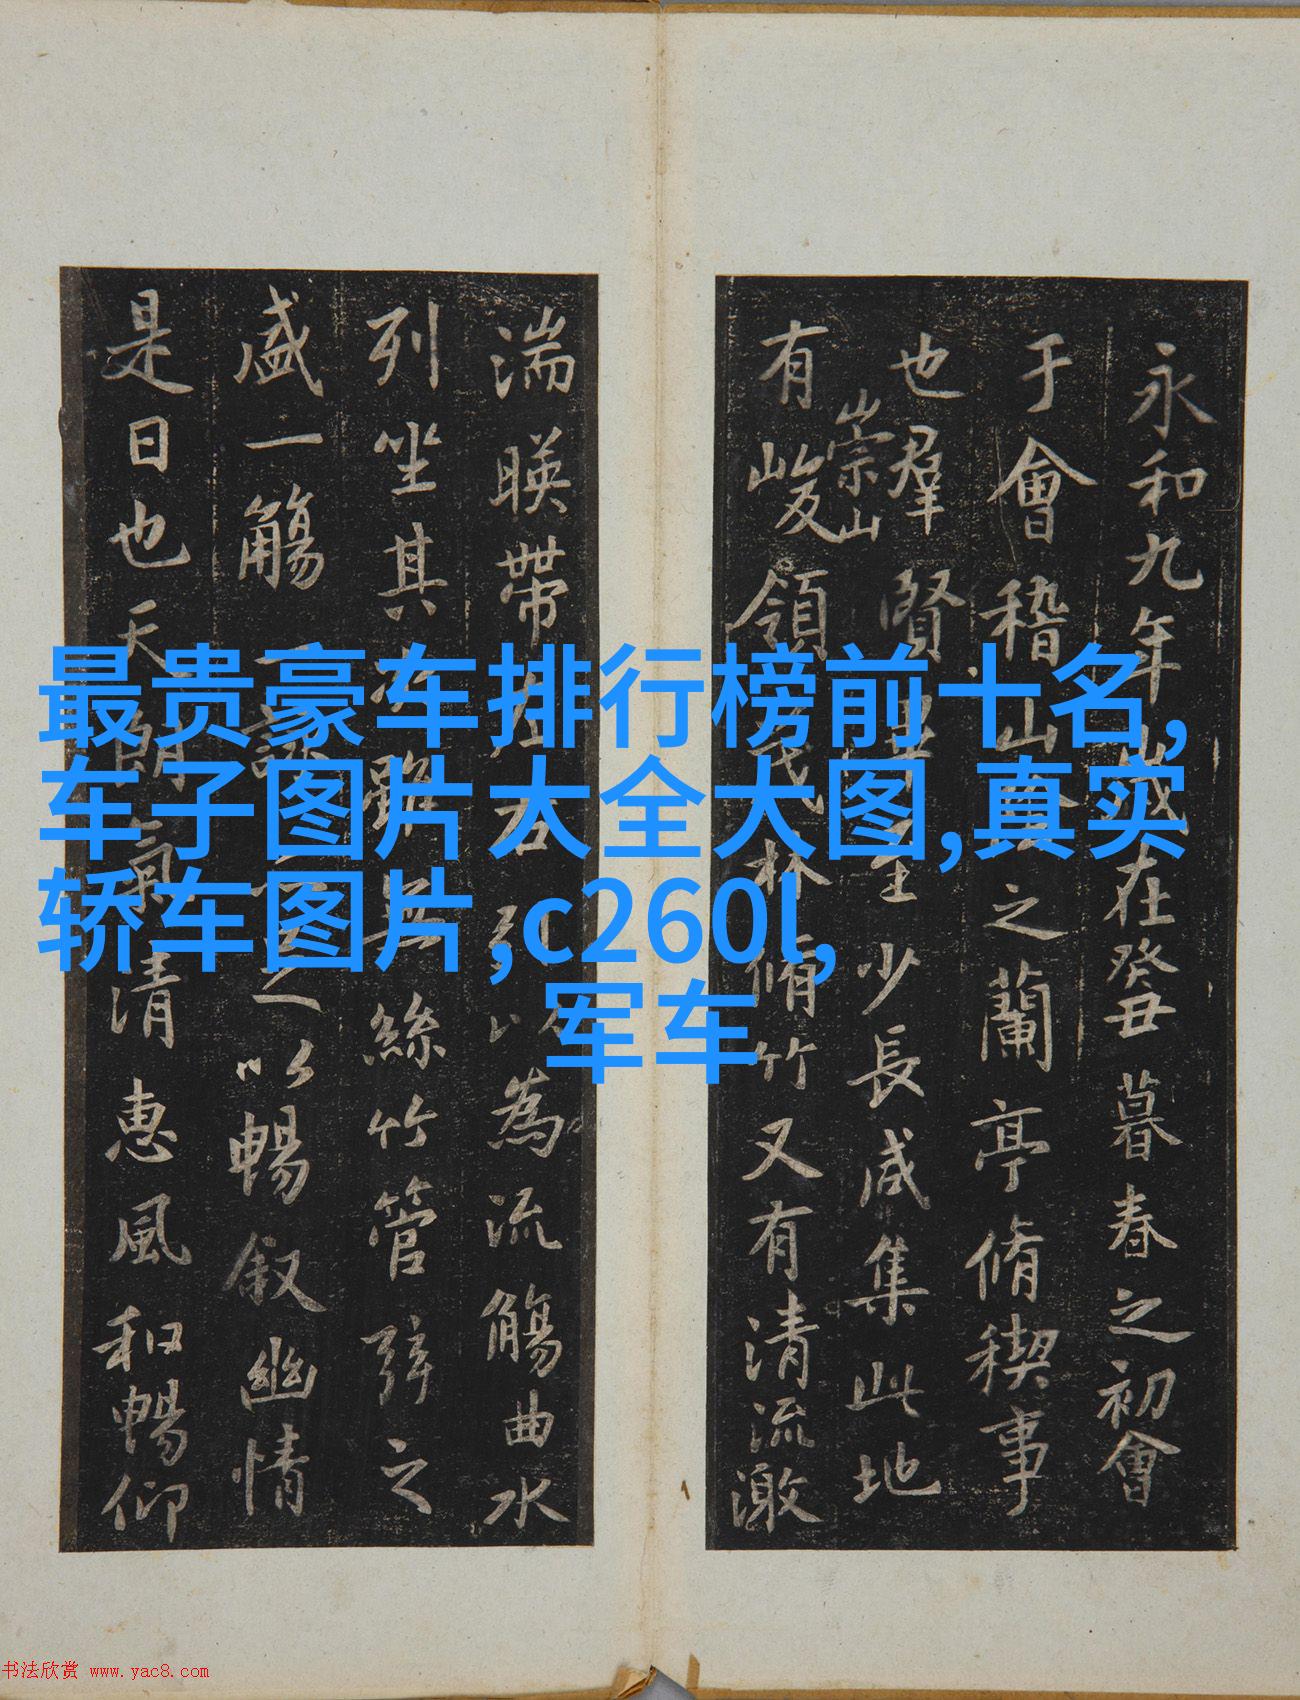 最贵豪车排行榜前十名,
车子图片大全大图,真实
轿车图片,c260l,
军车
永和九年歲在癸丑暮春之初會
于會稽山陰之蘭亭脩禊事
也羣賢畢至少長咸集此地
崇山
有峻領茂林脩竹又有清流激
湍暎帶左右引以為流觴曲水
列坐其次雖無絲竹管弦之
盛一觴一詠亦足以暢叙幽情
是日也天朗氣清惠風和暢仰
书法欣赏 www.yac8.com